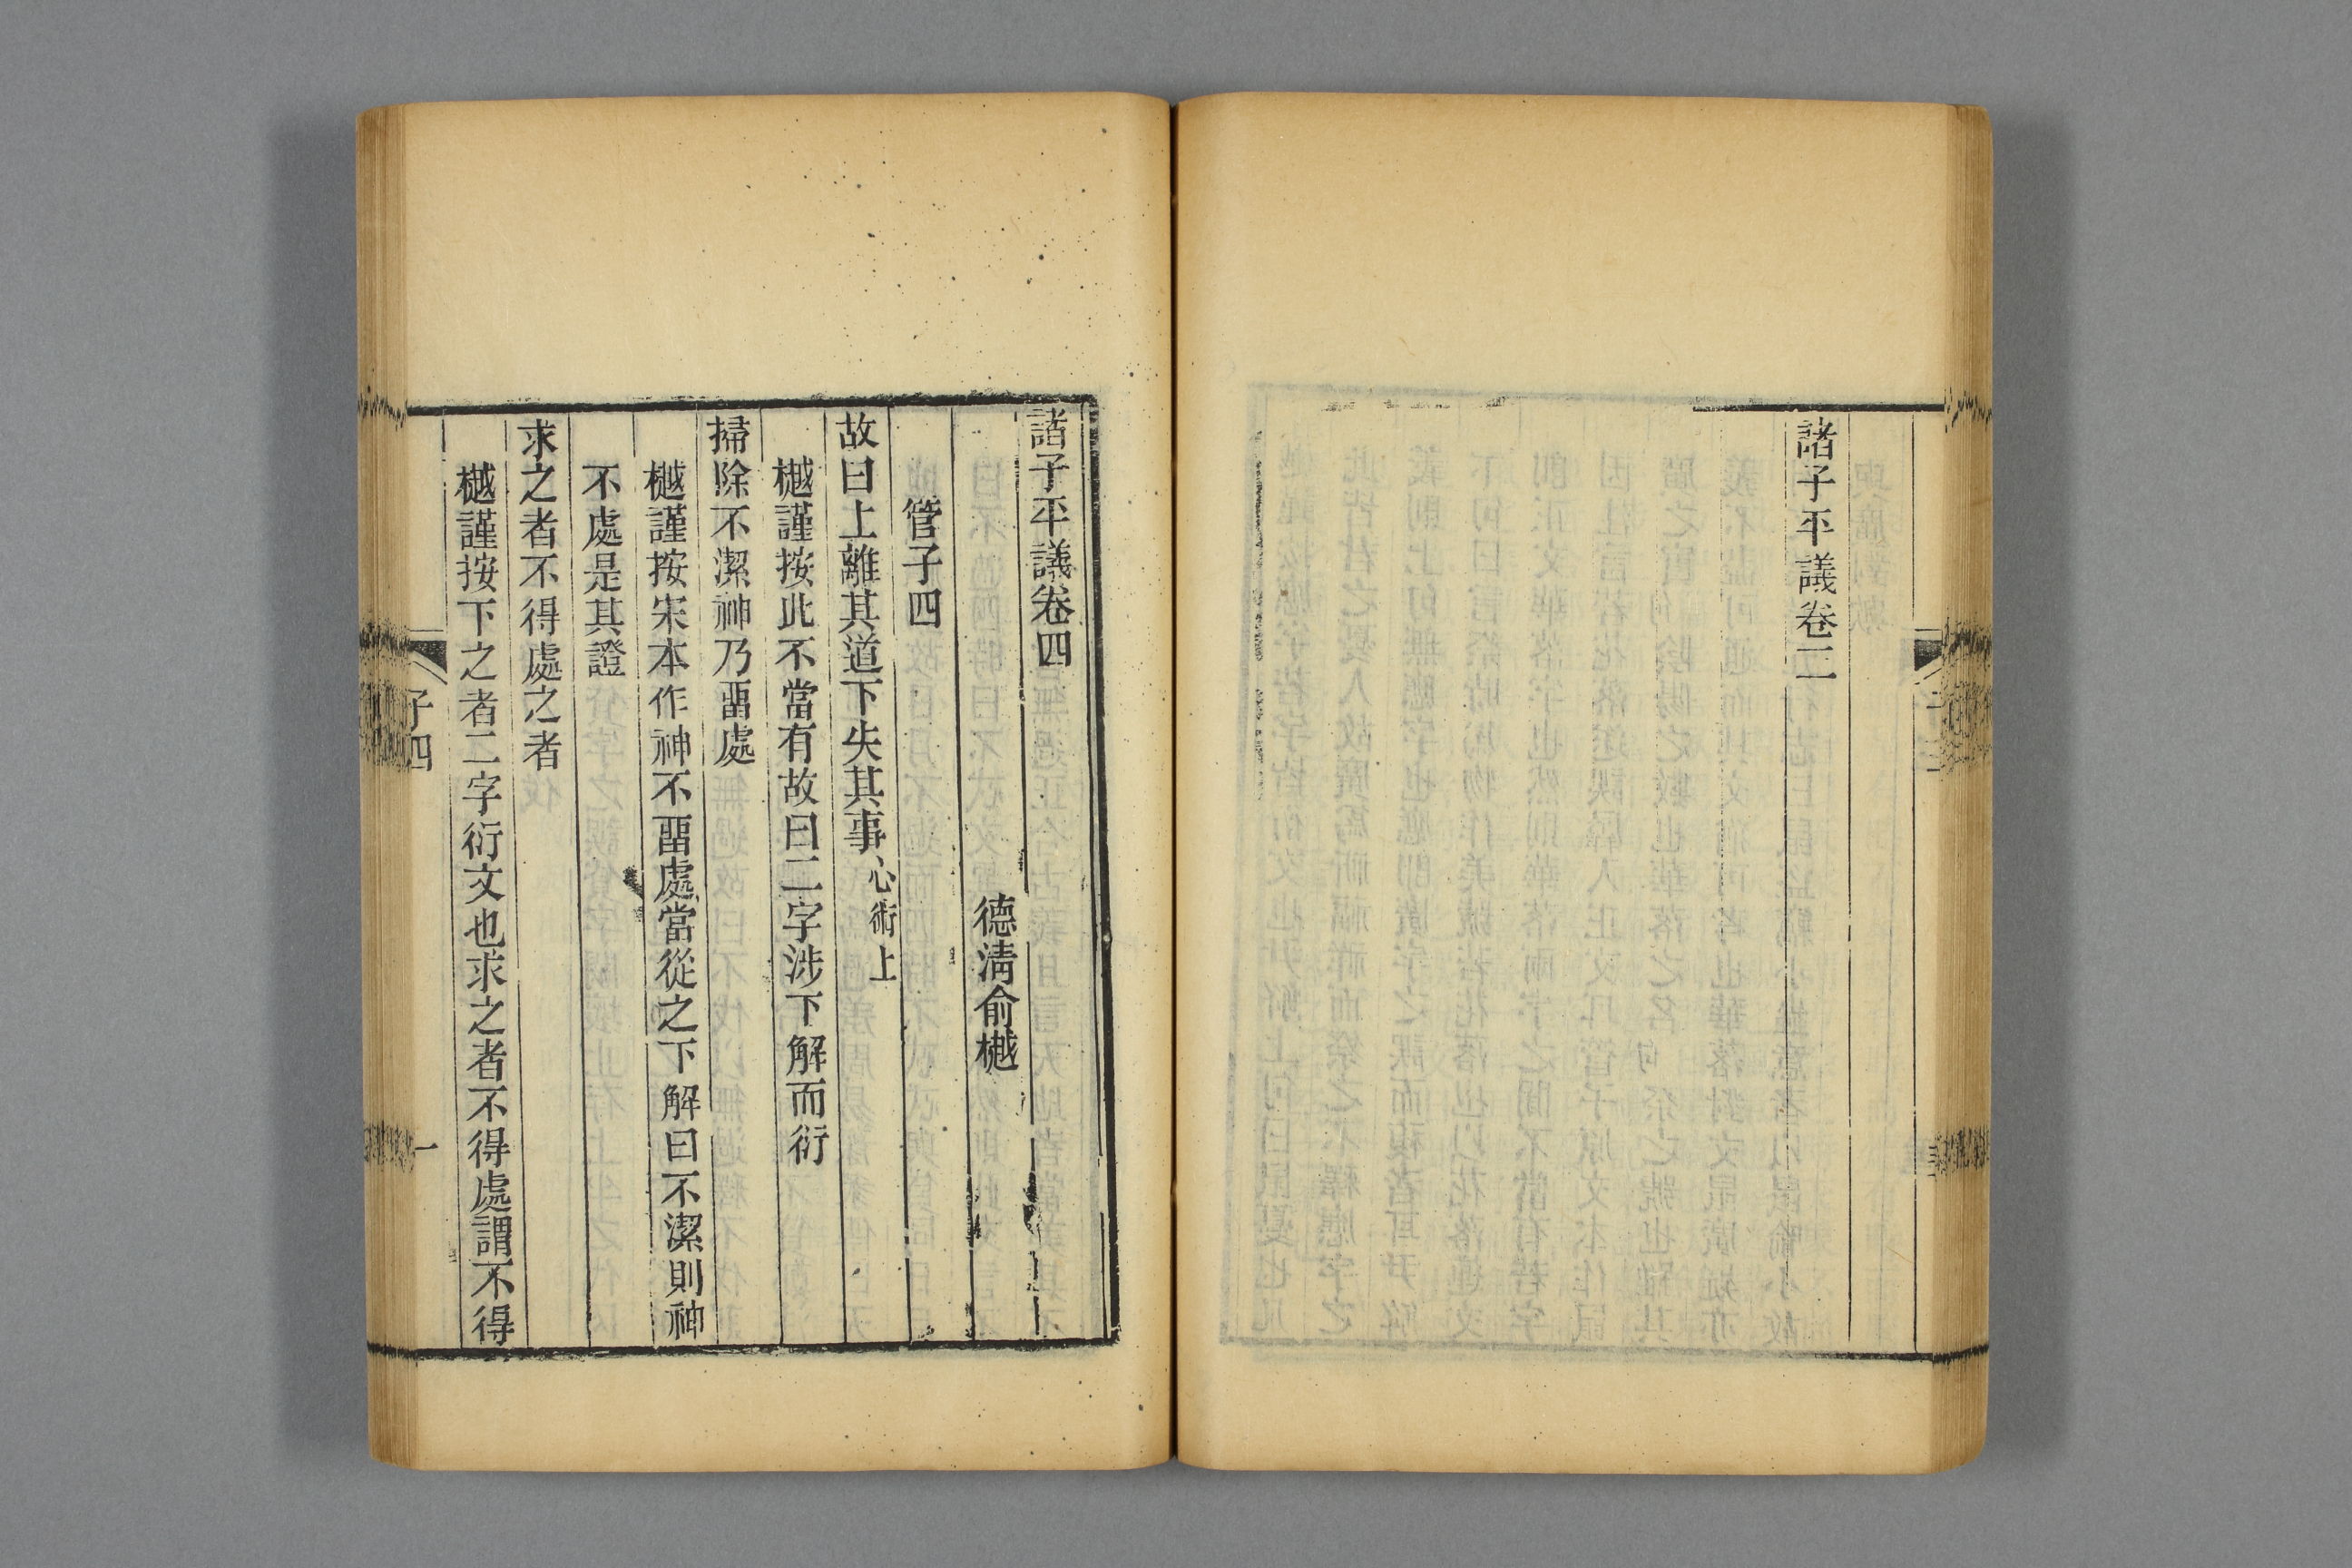 諸子平議卷三
諸子平議卷四
德淸俞樾
管子四
故曰上離其道下失其事心術上
樾謹按此不當有故曰二字涉下解而衍
掃除不潔神乃畱處
樾謹按宋本作神不畱處當從之下解曰不潔則神
不處是其證
求之者不得處之者
樾謹按下之者二字衍文也求之者不得處謂不得
子四
一